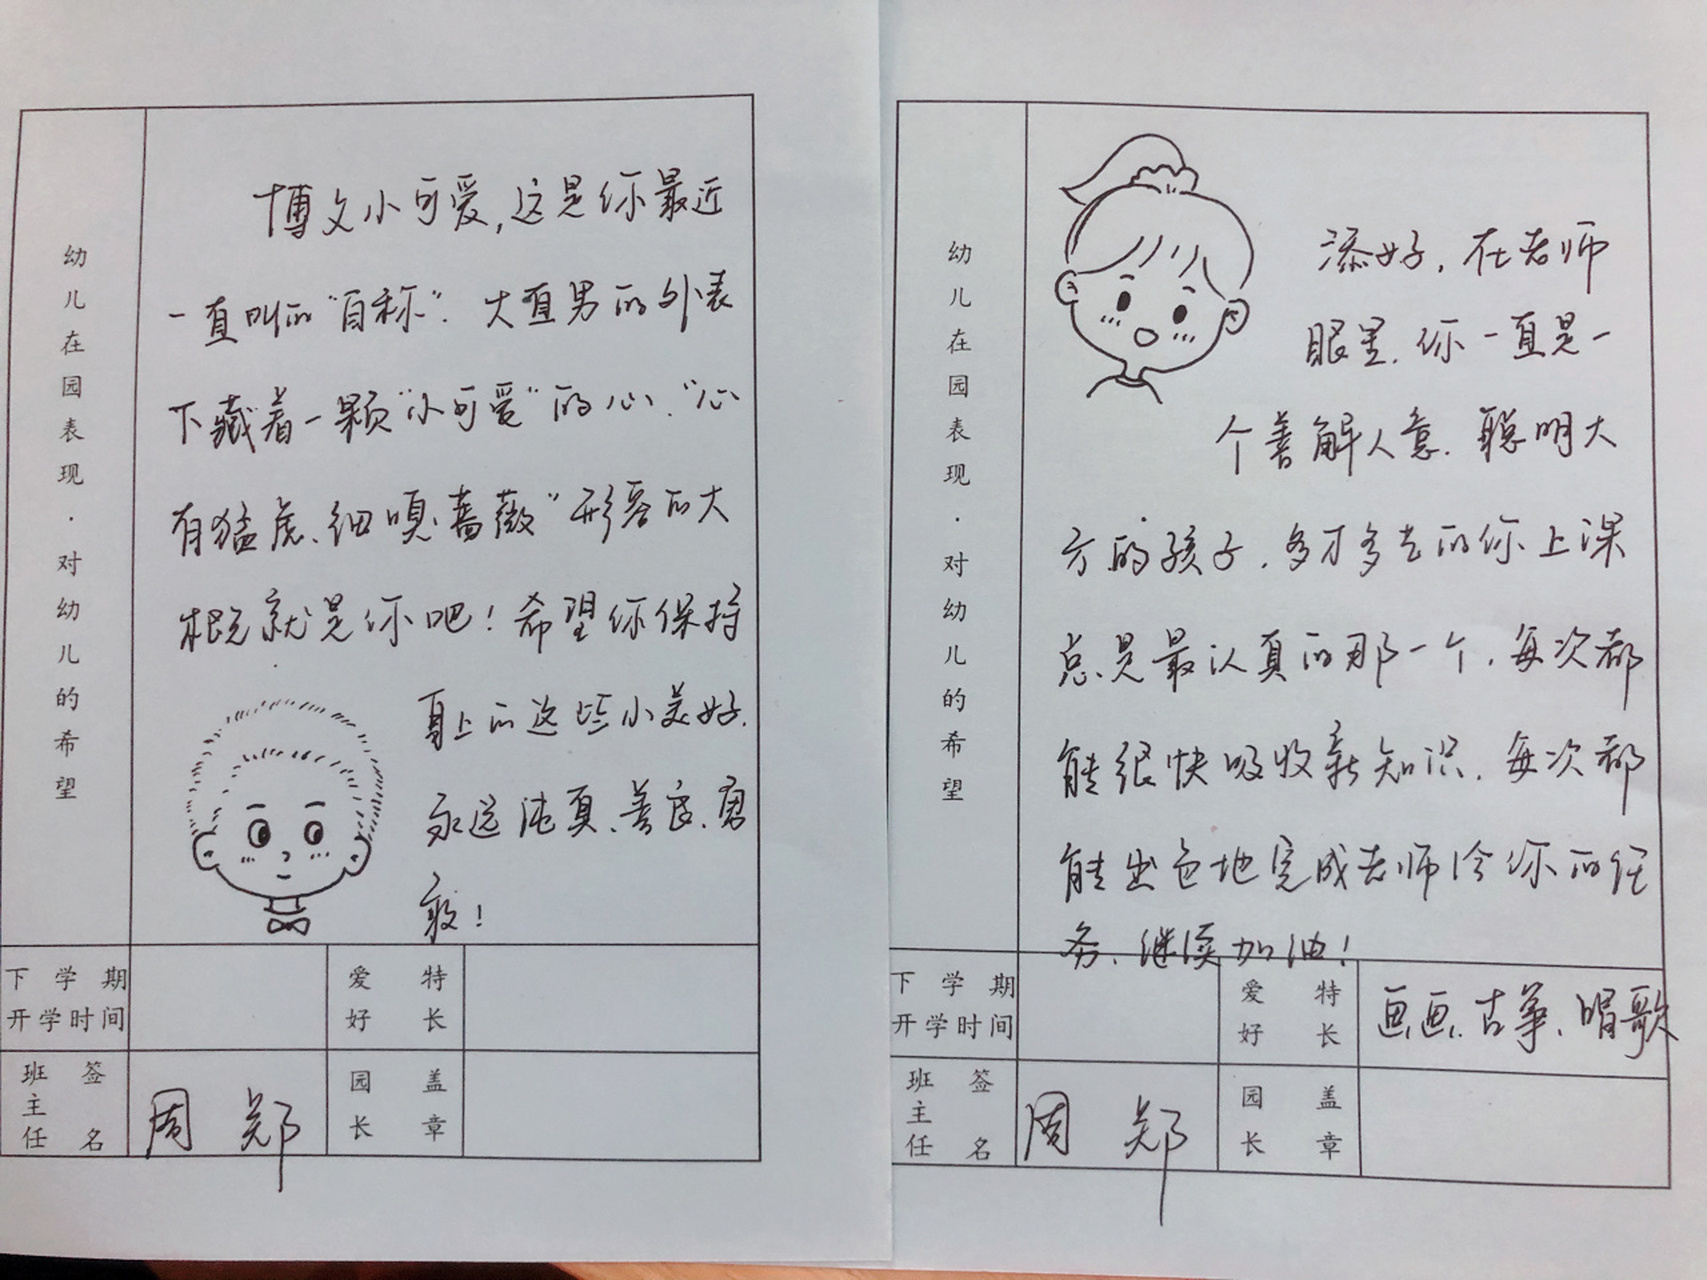 幼儿在园表现·对幼儿的希望
博文小可爱,这是你最近
一直叫的“自称”.大直男的外表
下藏着一颗“小可爱”的心.“心
有猛虎、细嗅蔷薇”形容的大
概就是你吧!希望你保持
身上的这些小美好.
永远纯真、善良、勇
敢!
下学期
开学时间
爱好
特长
班主任
签名
周 郑
园长
盖章
幼儿在园表现·对幼儿的希望
添好,在老师
眼里,你一直是一
个善解人意.聪明大
方的孩子,多才多艺的你上课
总是最认真的那一个,每次都
能很快吸收新知识,每次都
能出色地完成老师给你的任
务,继续加油!
下学期
开学时间
爱好
特长
画画、古筝、唱歌
班主任
签名
周 郑
园长
盖章